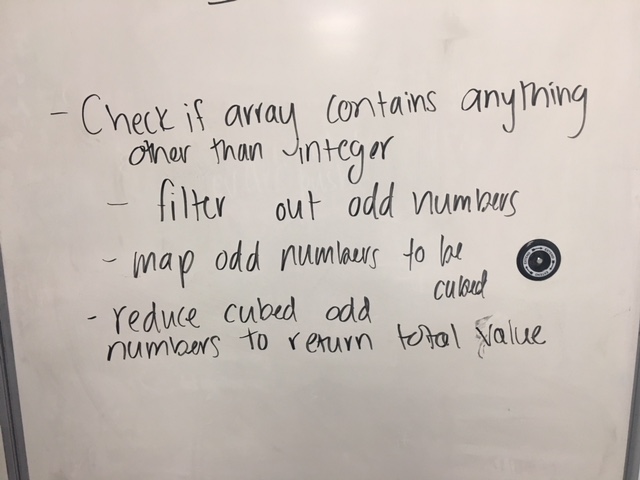 - Check if array contains anything
other than integer
- filter out odd numbers
- map odd numbers to be
cubed
- reduce cubed odd
numbers to return total value